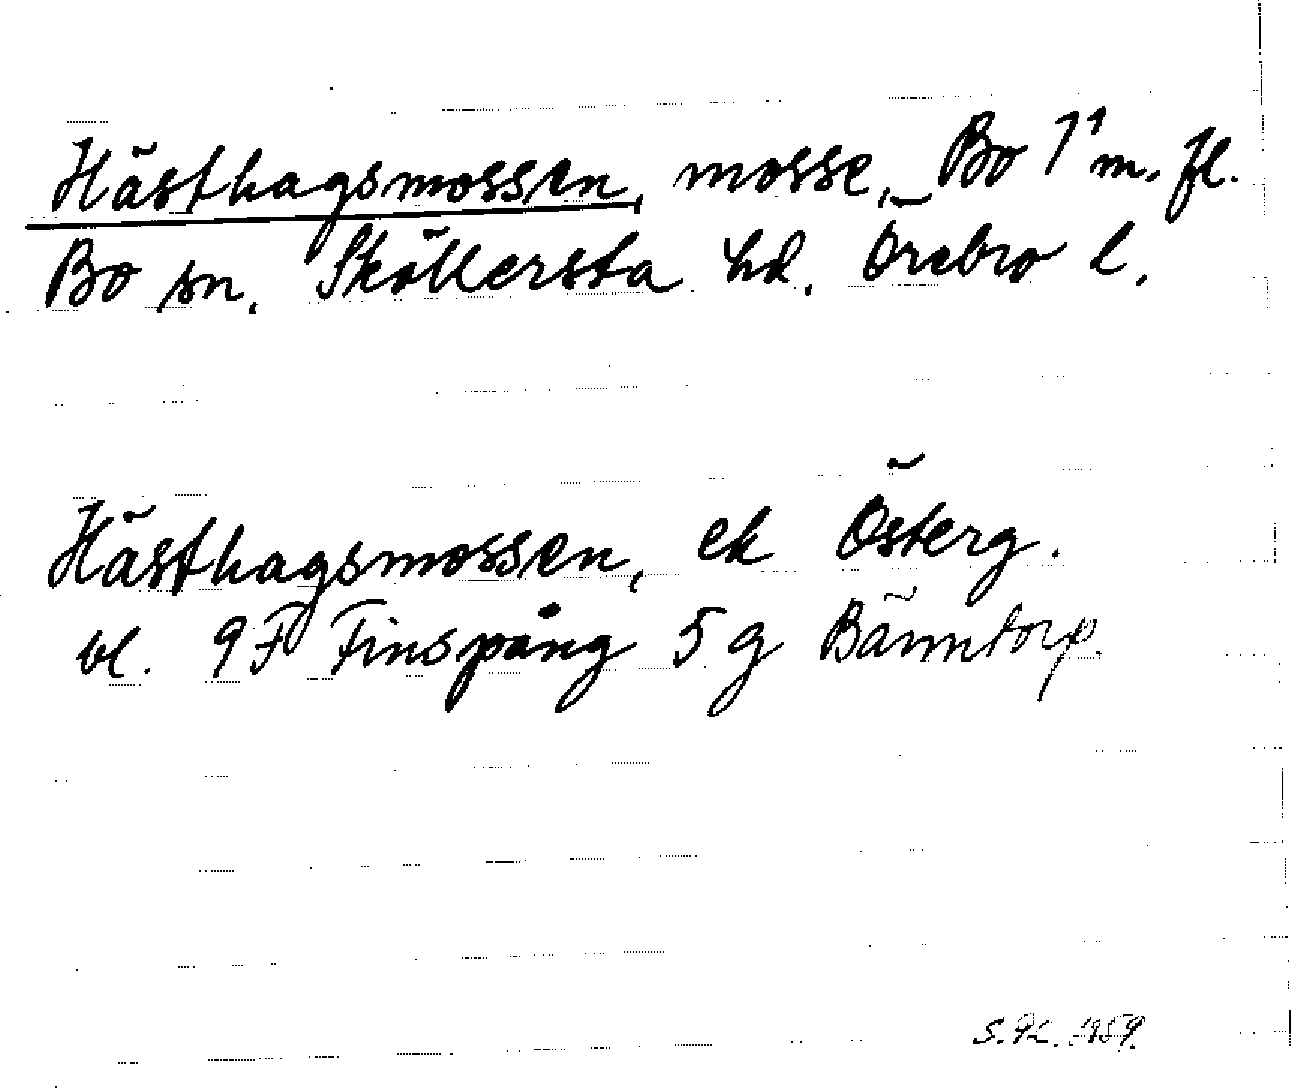 Hästhagsmossen, mosse, Bo 1¹ m. fl.
Bo sn. Sköllersta hd. Örebro l.
Hästhagsmossen, ek Österg.
bl. 9F Finspång 5g Bänntorp.
1959.